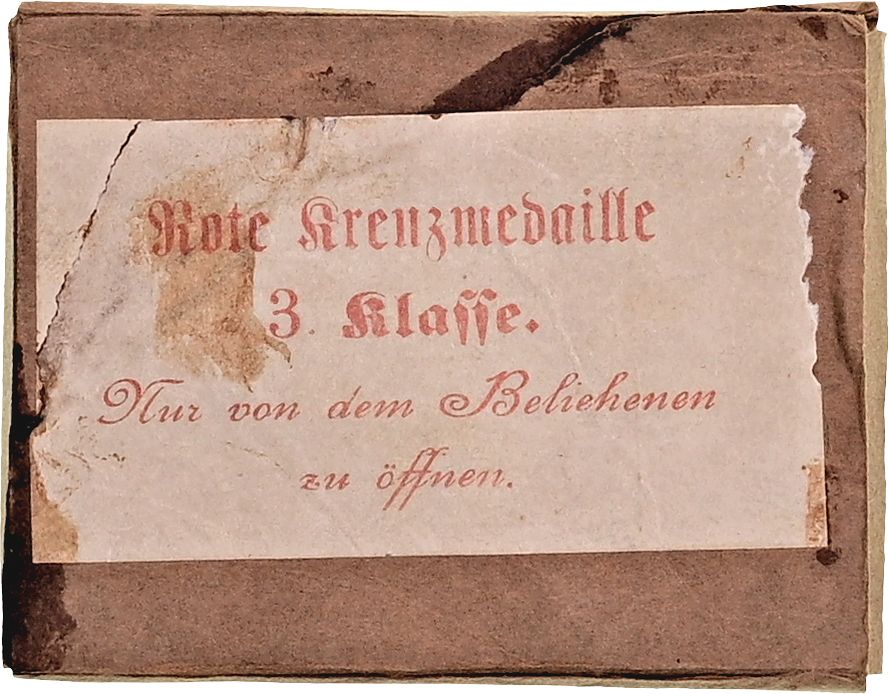 Rote Kreuzmedaille
3. Klasse.
Nur von dem Beliehenen
zu öffnen.